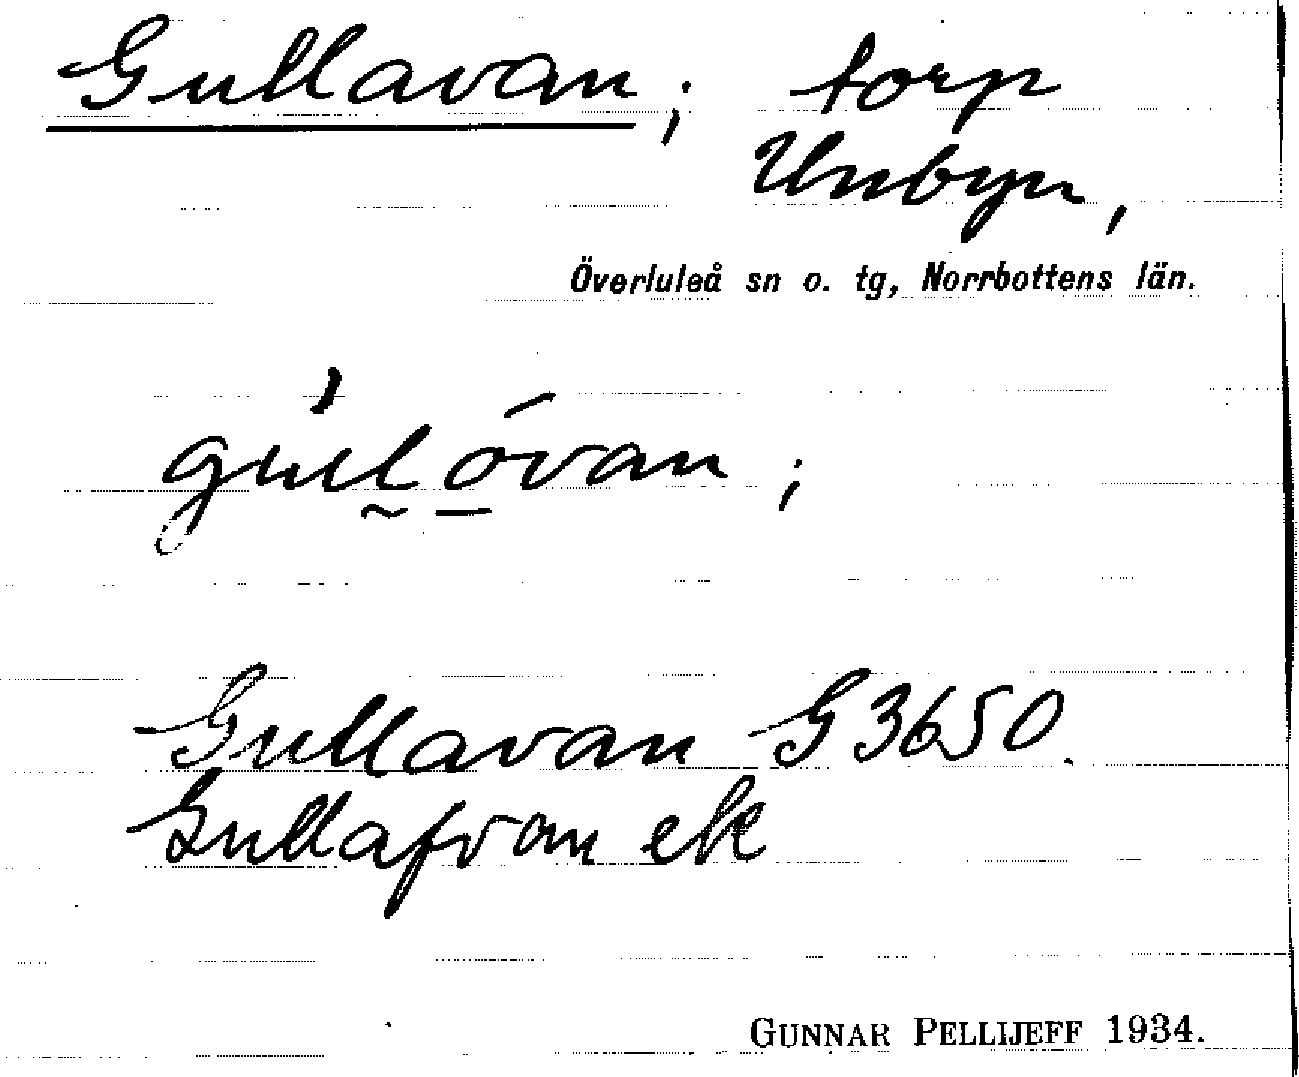 Gullavan; torp
Unbyn,
Överluleå sn o. tg, Norrbottens län.
gullóvan;
Gullavan G 3650.
Gullafvan ek
GUNNAR PELLIJEFF 1934.